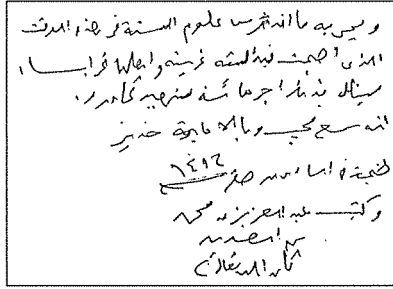 ويحيي به ما اندثر من علوم السنة في هذا الوقت
الذي أصبحت فيه السنة غريبة وأهلها غرباء،
فينال بذلك أجر مائة شهيد
إنه سميع مجيب وبالإجابة جدير
طنجة في صفر ١٤١٦
وكتب عبد العزيز بن محمد
بن الصديق